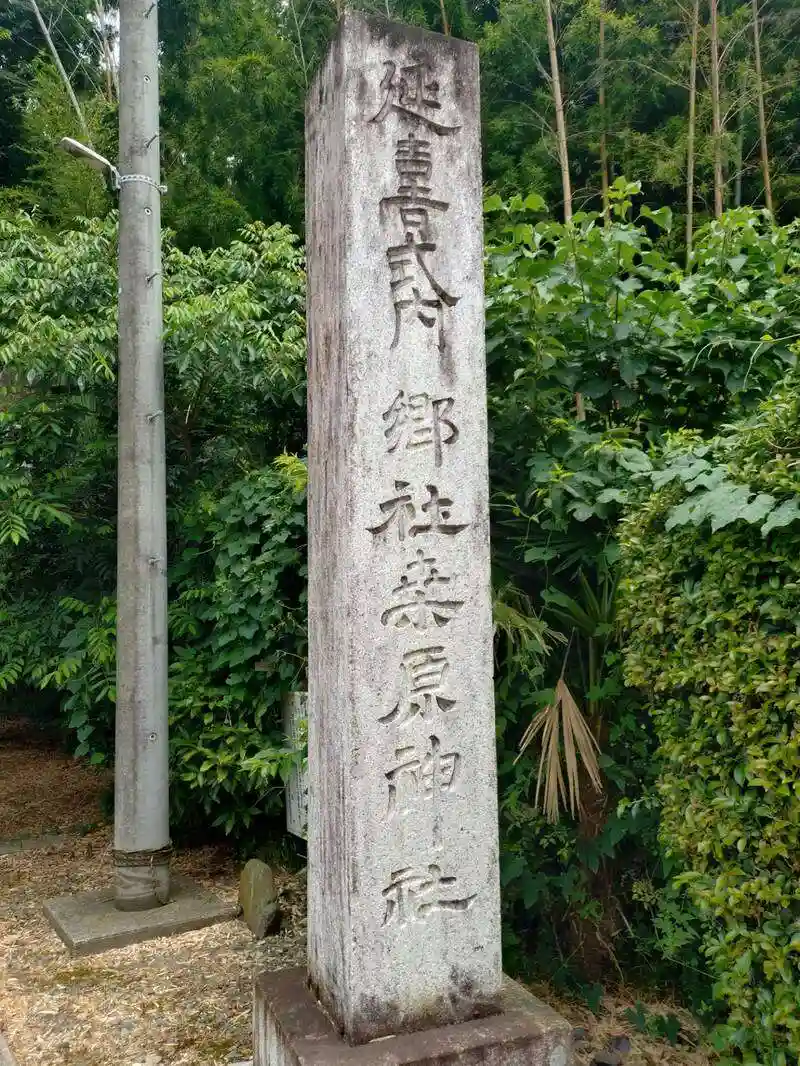 延喜式内郷社桒原神社